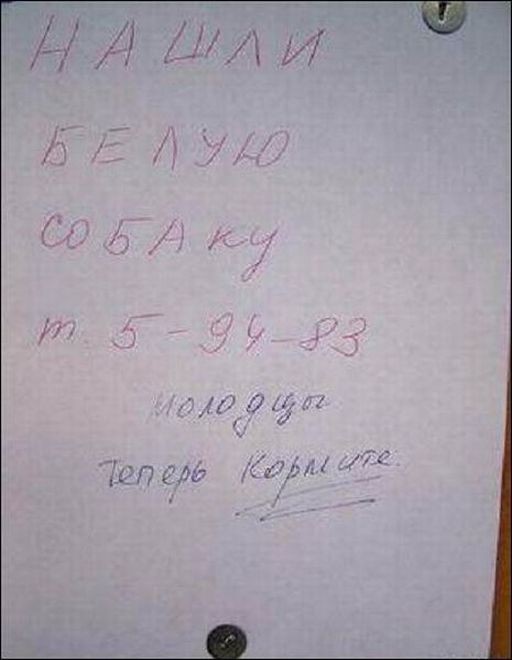 НАШЛИ
БЕЛУЮ
СОБАКУ
т. 5-94-83
молодцы
Теперь Кормите.